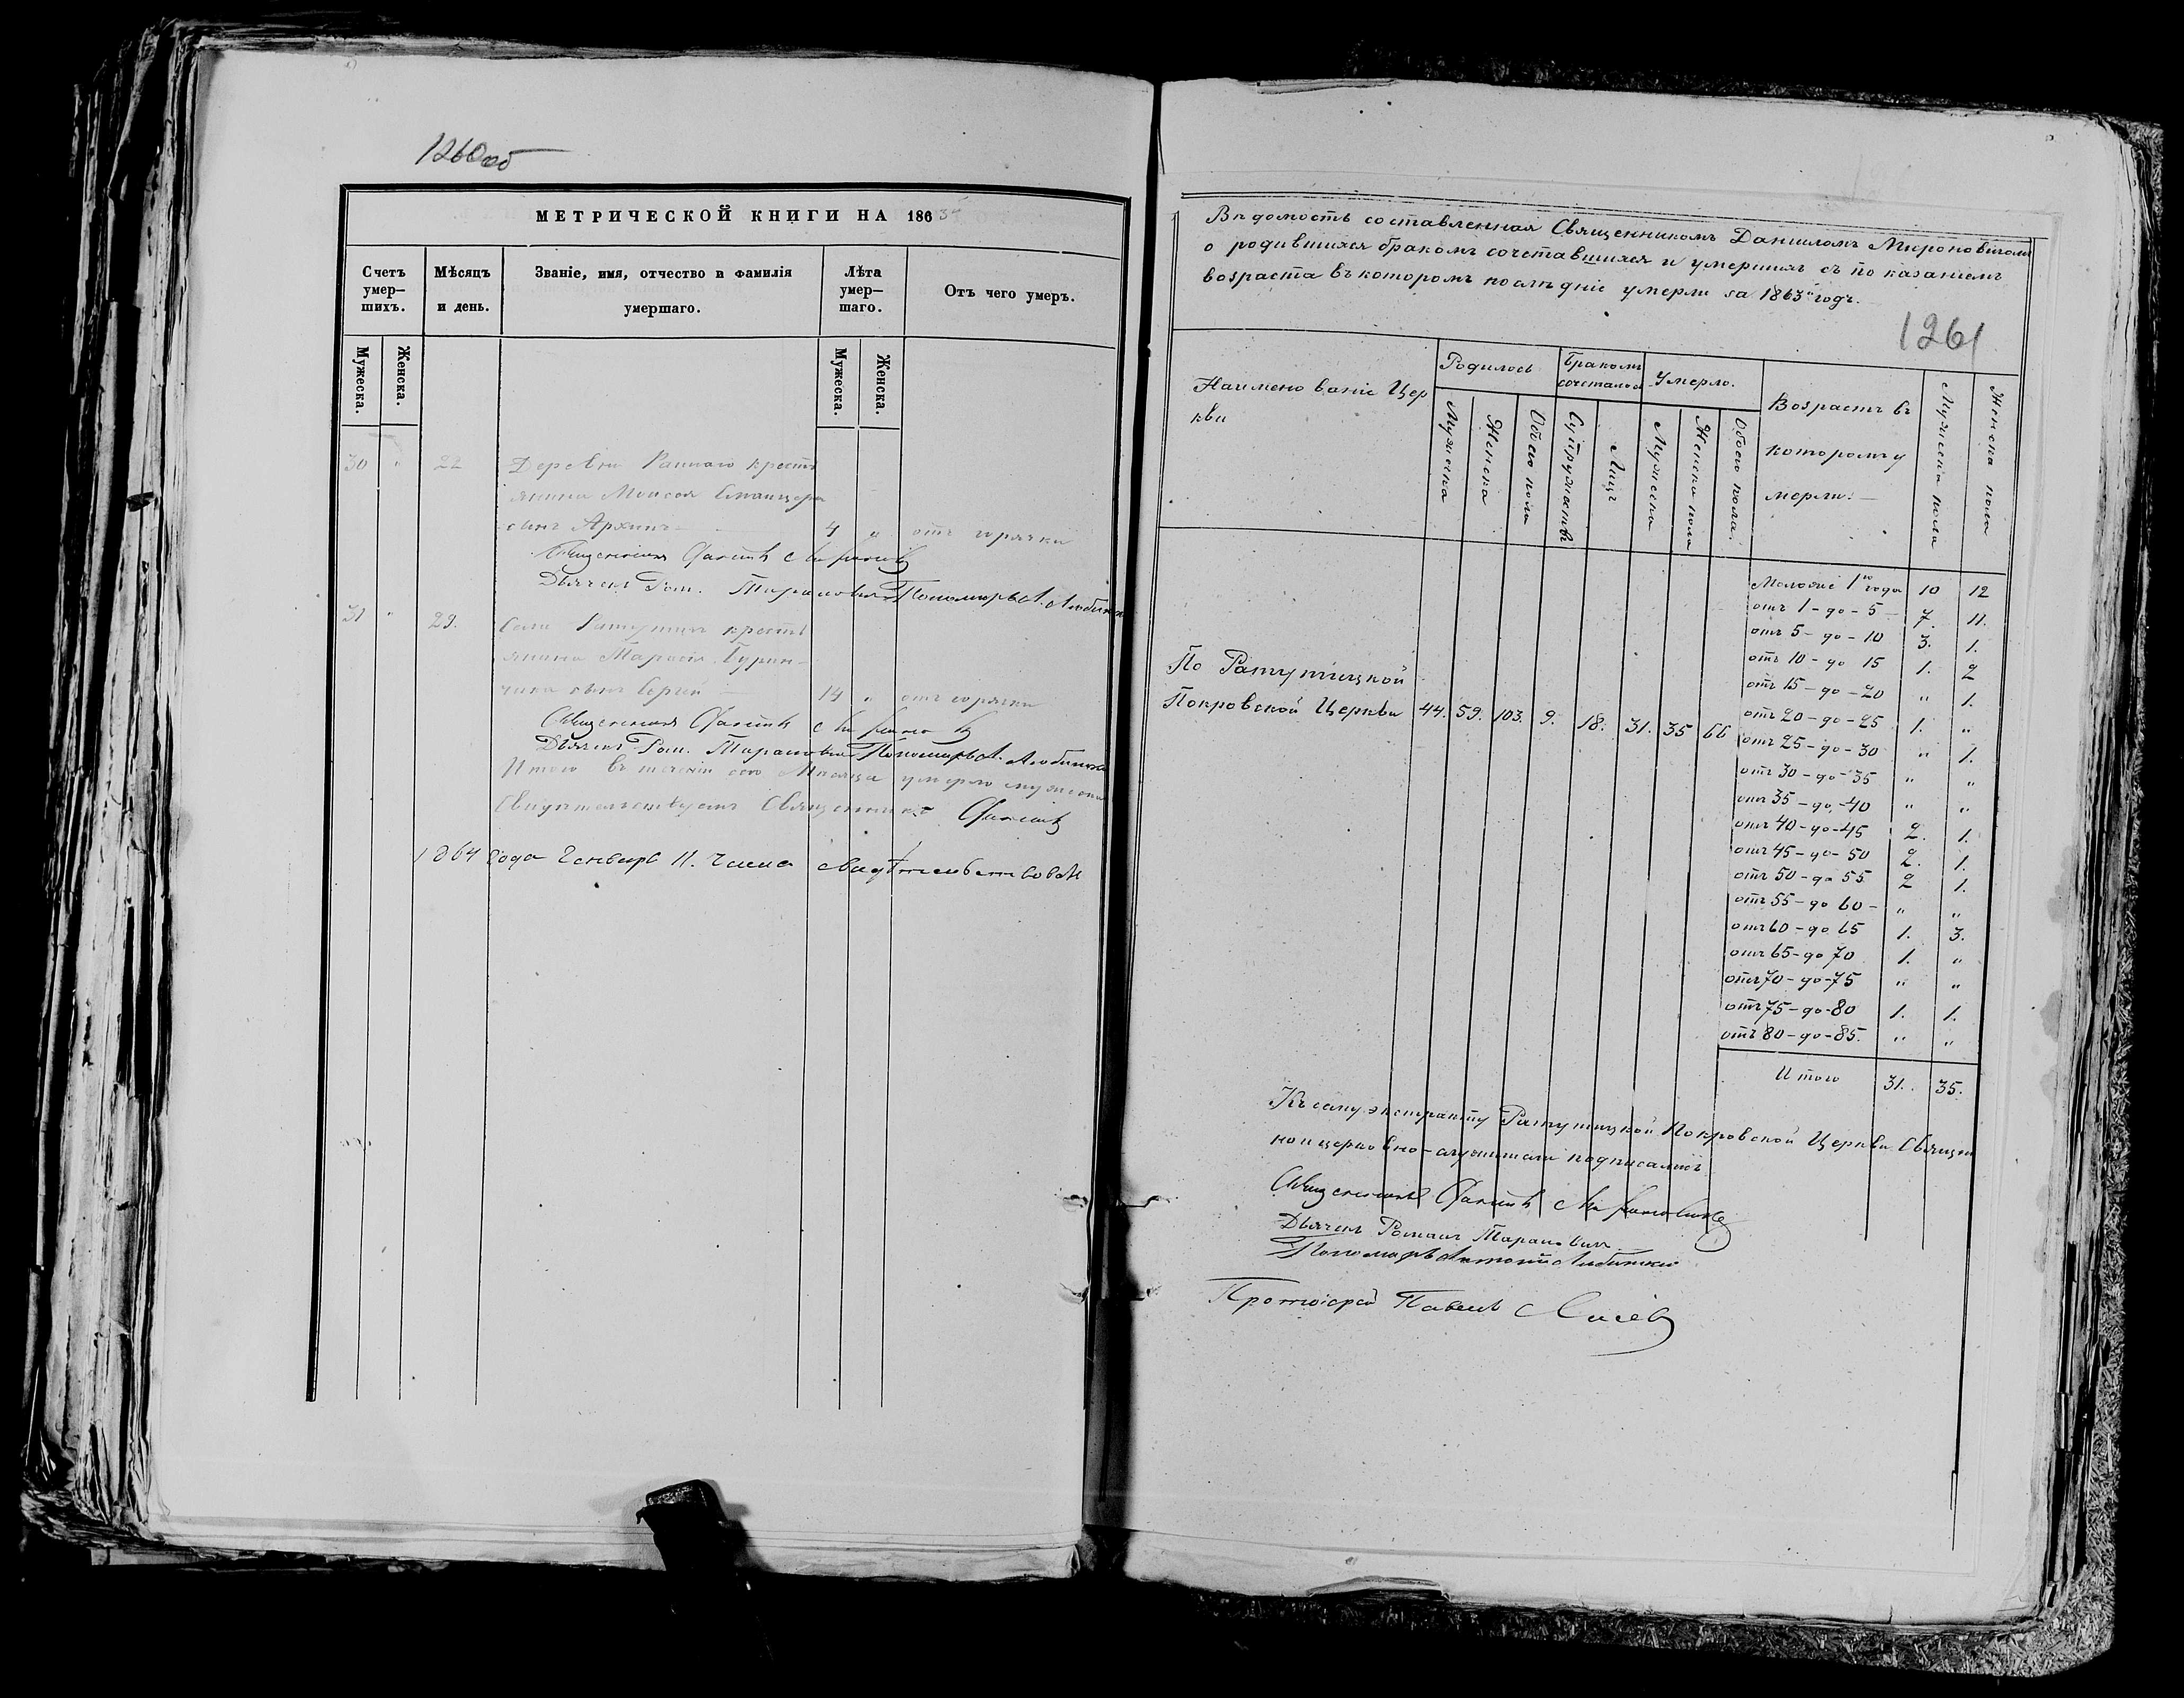 1260об
МЕТРИЧЕСКОЙ КНИГИ НА 1863
Счетъ умер–шихъ.
Мѣсяцъ и день.
Званіе, имя, отчество и фамилія умершаго.
Лѣта умер–шаго.
Отъ чего умеръ.
Мужеска.
Женска.
Мужеска.
Женска.
30 " 22 Деревни крестья
янина Моисея
сынъ Архипъ — 4 " отъ горячки
Священникъ Даніилъ Миронович
Дьячекъ Ром. Тарановичъ Пономарь А. Любинск
31 " 29. Села Ратутичъ крестья
янина Тарасія
сынъ Сергій — 14 " отъ горячки
Священникъ Даніилъ
Дьячекъ Ром. Тарановичъ Пономарь А. Любински
Итого въ теченіи сего Мѣсяца умерло мужеска
Свидѣтельствуетъ Священникъ Даніилъ
1864 года Генварь 11. Числа свидѣтельствовалъ
Вѣдомость составленная Священникомъ Даніиломъ Мироновичомъ
о родившихся бракомъ сочетавшихся и умершихъ съ показаніемъ
возраста въ которомъ послѣдніе умерли за 1863й годъ.
1261
Наименованіе Цер
кви
Родилось
Бракомъ сочеталось
Умерло.
Возрастъ въ
которомъ у
мерли. —
Мужеска пола
Женска пола
Мужеска
Женска
Обоего пола
Супружествъ
Лицъ
Мужеска
Женска пола
Обоего пола.
Моложе 1го года 10 12
отъ 1 – до – 5 – 7. 11.
отъ 5 – до – 10 3. 1.
отъ 10 – до 15 1. 2
отъ 15 – до – 20 " 1.
отъ 20 – до – 25 1. "
отъ 25 – до – 30 " 1.
отъ 30 – до – 35 " "
отъ 35 – до – 40 " "
отъ 40 – до – 45 2. 1.
отъ 45 – до – 50 2. 1.
отъ 50 – до 55 2 1.
отъ 55 – до 60 – " "
отъ 60 – до 65 1. 3.
отъ 65 – до 70 1. "
отъ 70 – до – 75 " "
отъ 75 – до – 80 1. 1.
отъ 80 – до – 85. " "
Итого 31. 35.
По Ратутицкой
Покровской Церкви 44. 59. 103. 9. 18. 31. 35 66
Къ сему экстракту Ратутицкой Покровской Церкви Священ
но и церковно-служители подписались.
Священникъ Даніилъ Мироновичъ
Дьячекъ Романъ Тарановичъ
Пономарь Антоній Любински
Протоіерей Павелъ